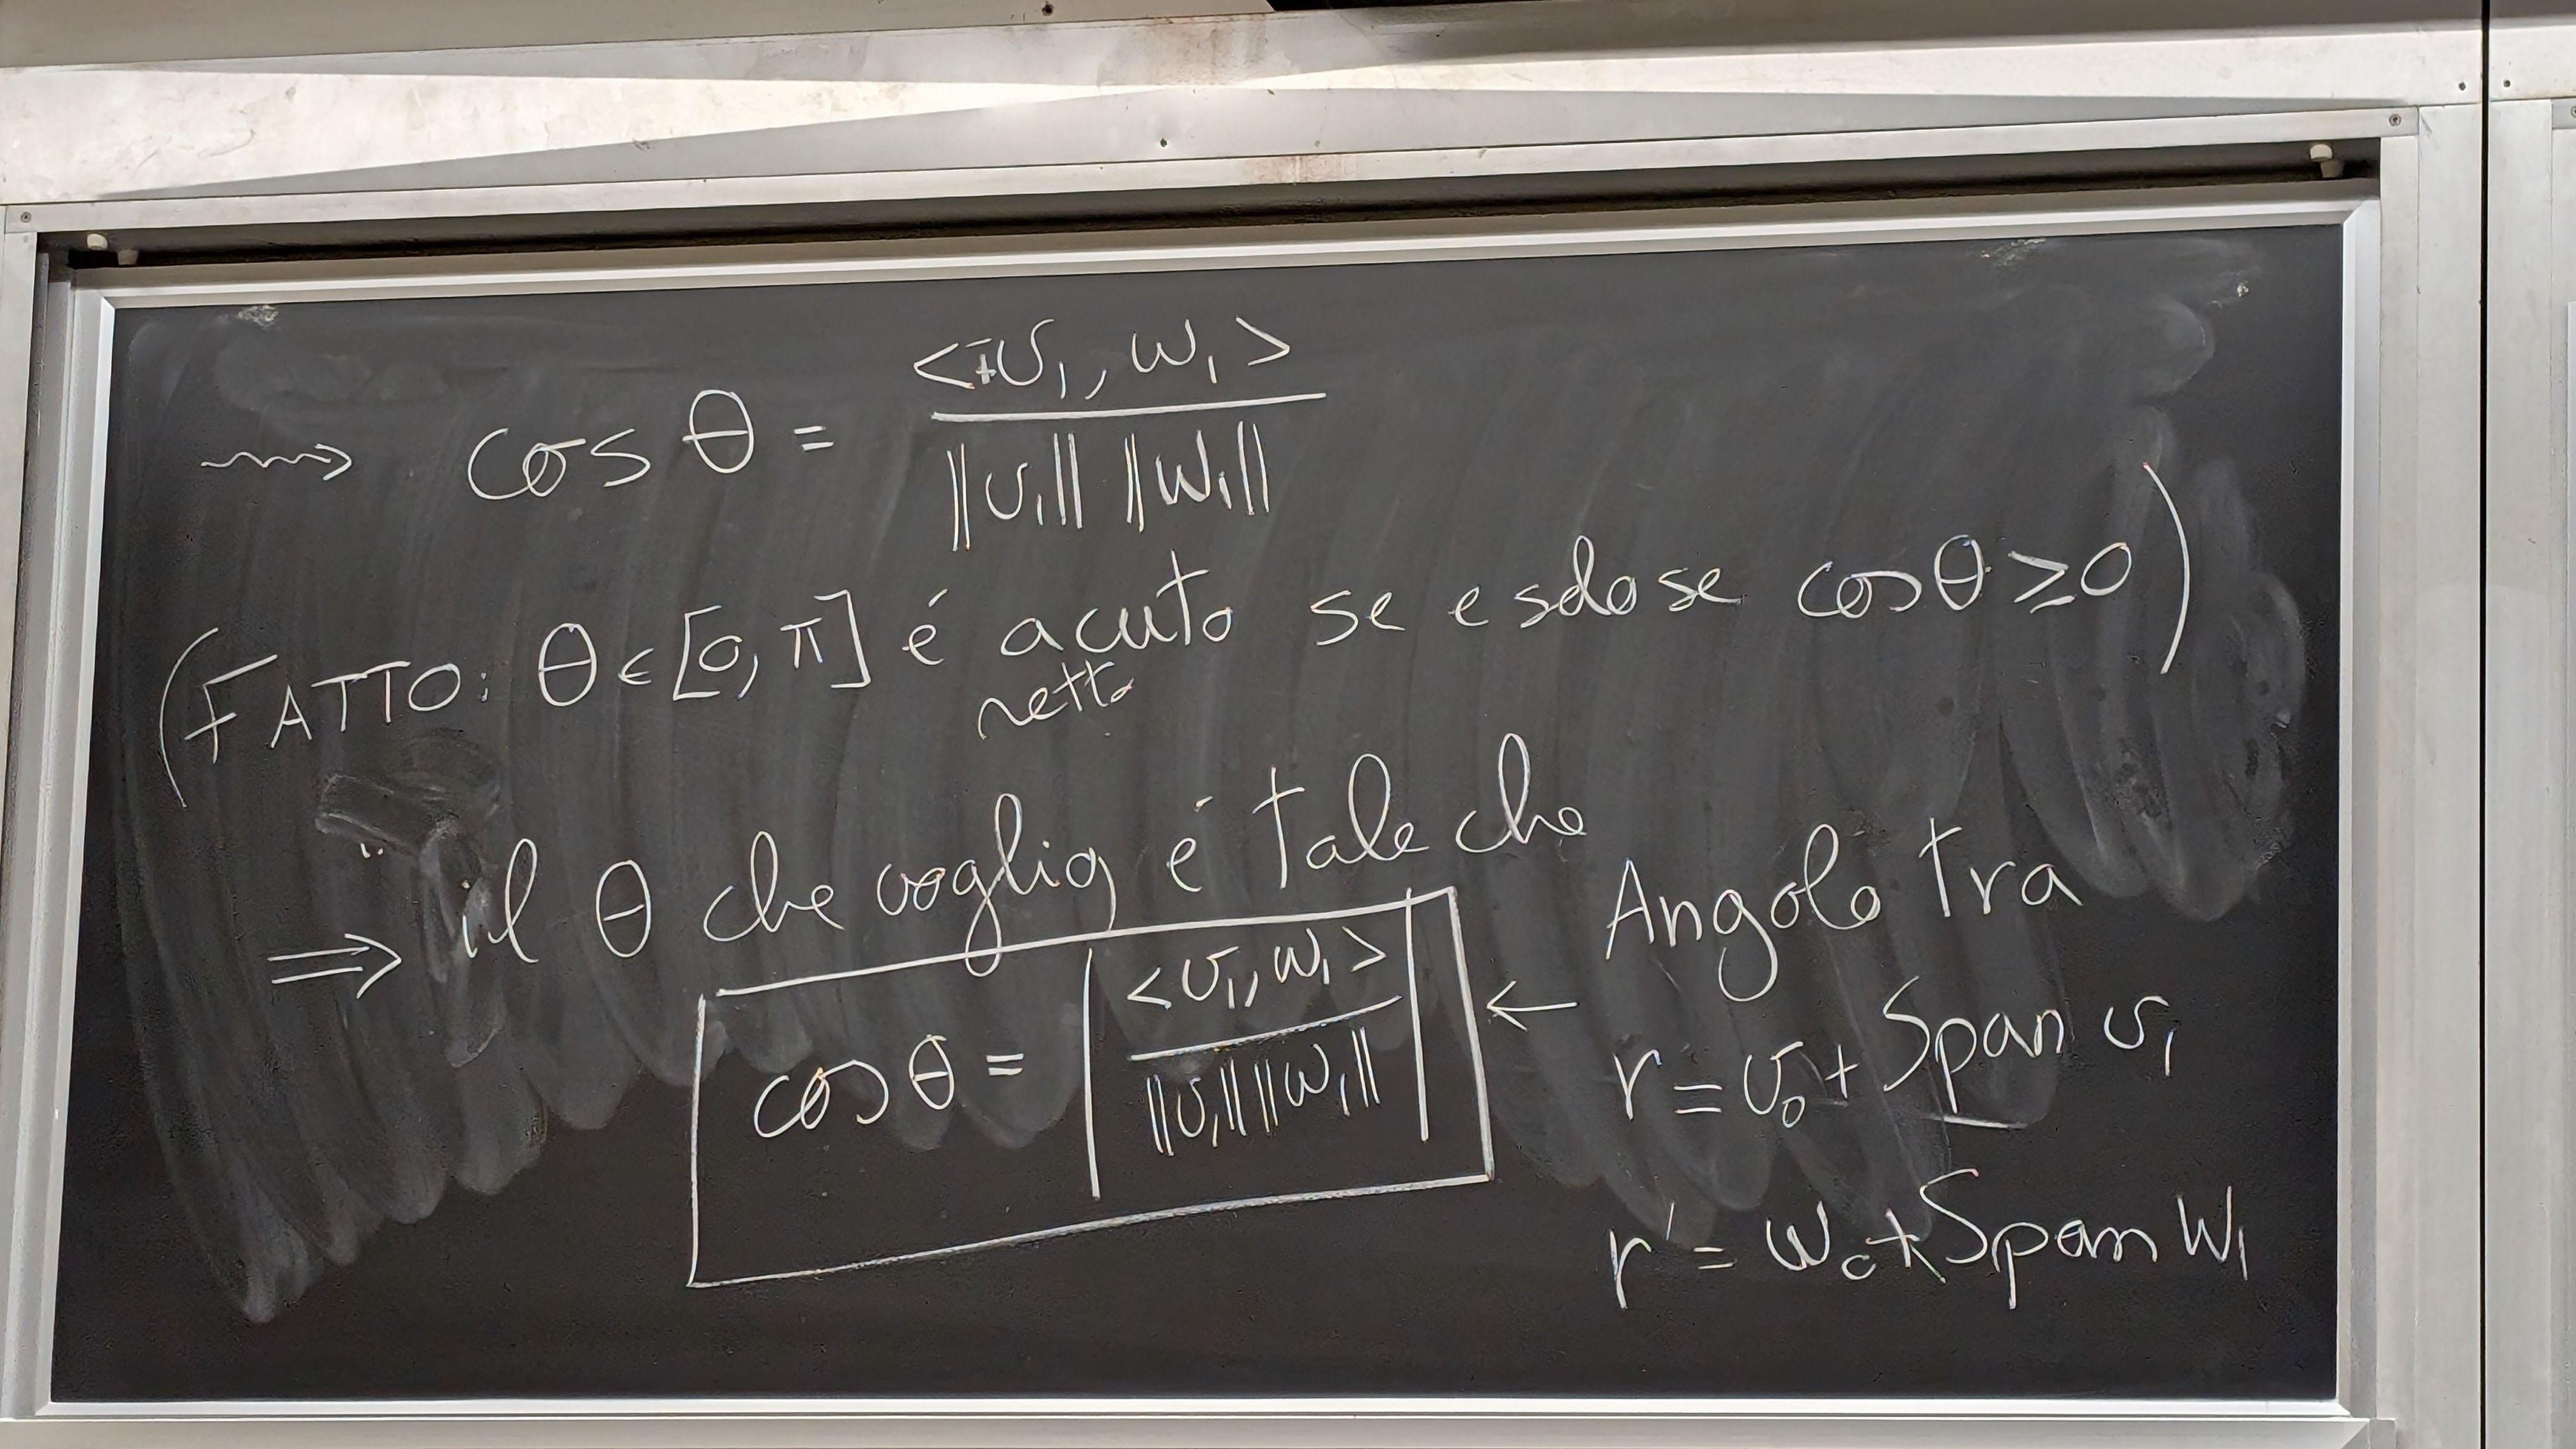 ⟿ cos θ = <±v₁, w₁> / ‖v₁‖ ‖w₁‖
(FATTO: θ ∈ [0, π] é acuto se e solo se cos θ ≥ 0)
retto
⇒ il θ che voglio é tale che
cos θ = | <v₁, w₁> / ‖v₁‖ ‖w₁‖ | ← Angolo tra
r = v₀ + Span v₁
r' = w₀ + Span w₁